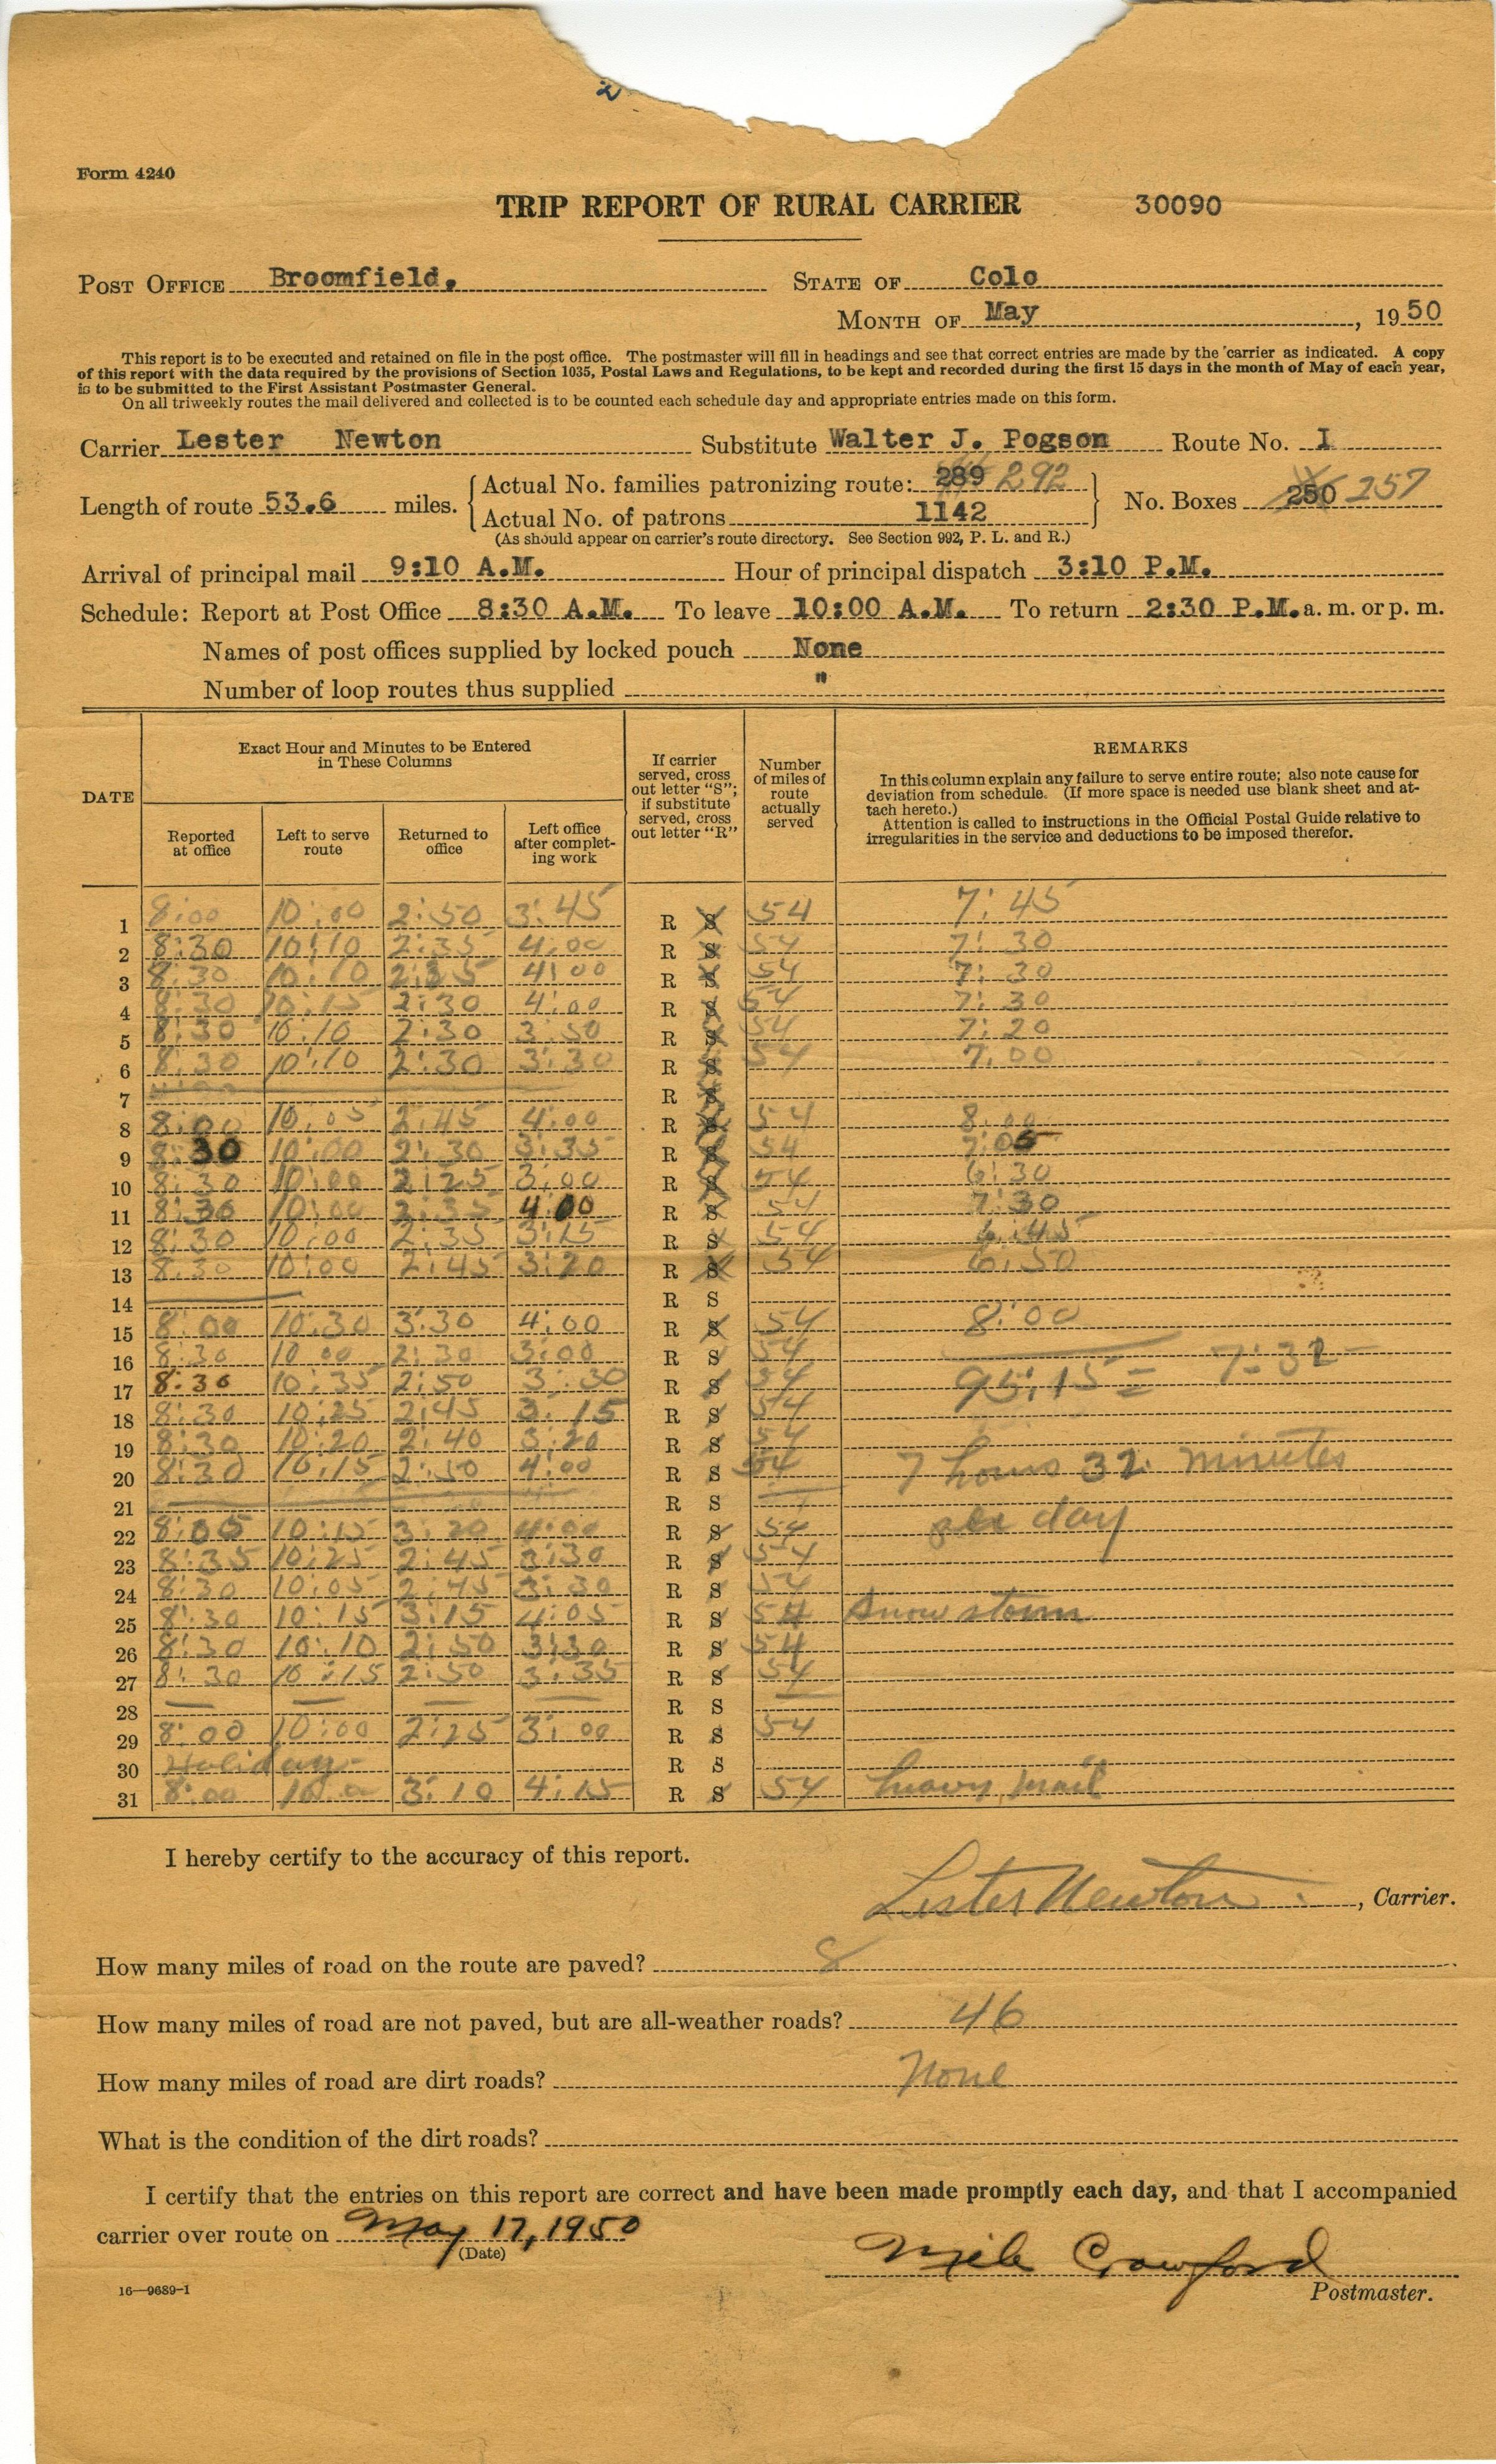 2
Form 4240
TRIP REPORT OF RURAL CARRIER 30090
POST OFFICE Broomfield, STATE OF Colo
MONTH OF May, 1950
This report is to be executed and retained on file in the post office. The postmaster will fill in headings and see that correct entries are made by the carrier as indicated. A copy
of this report with the data required by the provisions of Section 1035, Postal Laws and Regulations, to be kept and recorded during the first 15 days in the month of May of each year,
is to be submitted to the First Assistant Postmaster General.
On all triweekly routes the mail delivered and collected is to be counted each schedule day and appropriate entries made on this form.
Carrier Lester Newton Substitute Walter J. Pogson Route No. I
Length of route 53.6 miles. Actual No. families patronizing route: 289 292 No. Boxes 250 257
Actual No. of patrons 1142
(As should appear on carrier's route directory. See Section 992, P. L. and R.)
Arrival of principal mail 9:10 A.M. Hour of principal dispatch 3:10 P.M.
Schedule: Report at Post Office 8:30 A.M. To leave 10:00 A.M. To return 2:30 P.M. a. m. or p. m.
Names of post offices supplied by locked pouch None
Number of loop routes thus supplied "
DATE
Exact Hour and Minutes to be Entered
in These Columns
Reported
at office
Left to serve
route
Returned to
office
Left office
after complet-
ing work
If carrier
served, cross
out letter "S";
if substitute
served, cross
out letter "R"
Number
of miles of
route
actually
served
REMARKS
In this column explain any failure to serve entire route; also note cause for
deviation from schedule. (If more space is needed use blank sheet and at-
tach hereto.)
Attention is called to instructions in the Official Postal Guide relative to
irregularities in the service and deductions to be imposed therefor.
1 8:00 10:00 2:50 3:45 R S 54 7:45
2 8:30 10:10 2:35 4:00 R S 54 7:30
3 8:30 10:10 2:35 4:00 R S 54 7:30
4 8:30 10:15 2:30 4:00 R S 54 7:30
5 8:30 10:10 2:30 3:50 R S 54 7:20
6 8:30 10:10 2:30 3:30 R S 54 7:00
7 R S
8 8:00 10:05 2:45 4:00 R S 54 8:00
9 8:30 10:00 2:30 3:35 R S 54 7:05
10 8:30 10:00 2:25 3:00 R S 54 6:30
11 8:30 10:00 2:35 4:00 R S 54 7:30
12 8:30 10:00 2:35 3:15 R S 54 6:45
13 8:30 10:00 2:45 3:20 R S 54 6:50
14 R S
15 8:00 10:30 3:30 4:00 R S 54 8:00
16 8:30 10 00 2:30 3:00 R S 54
17 8:30 10:35 2:50 3:30 R S 54 95:15 = 7:32
18 8:30 10:25 2:45 3:15 R S 54
19 8:30 10:20 2:40 3:20 R S 54
20 8:30 10:15 2:50 4:00 R S 54 7 hours 32 minutes
21 R S
22 8:05 10:15 3:20 4:00 R S 54 per day
23 8:35 10:25 2:45 3:30 R S 54
24 8:30 10:05 2:45 3:30 R S 54
25 8:30 10:15 3:15 4:05 R S 54 Snow storm
26 8:30 10:10 2:50 3:30 R S 54
27 8:30 10:15 2:50 3:35 R S 54
28 R S
29 8:00 10:00 2:25 3:00 R S 54
30 Holiday R S
31 8:00 10:0 3:10 4:15 R S 54 heavy mail
I hereby certify to the accuracy of this report.
Lester Newton, Carrier.
How many miles of road on the route are paved? 8
How many miles of road are not paved, but are all-weather roads? 46
How many miles of road are dirt roads? None
What is the condition of the dirt roads?
I certify that the entries on this report are correct and have been made promptly each day, and that I accompanied
carrier over route on May 17, 1950
(Date)
Crawford
16—9689-1
Postmaster.